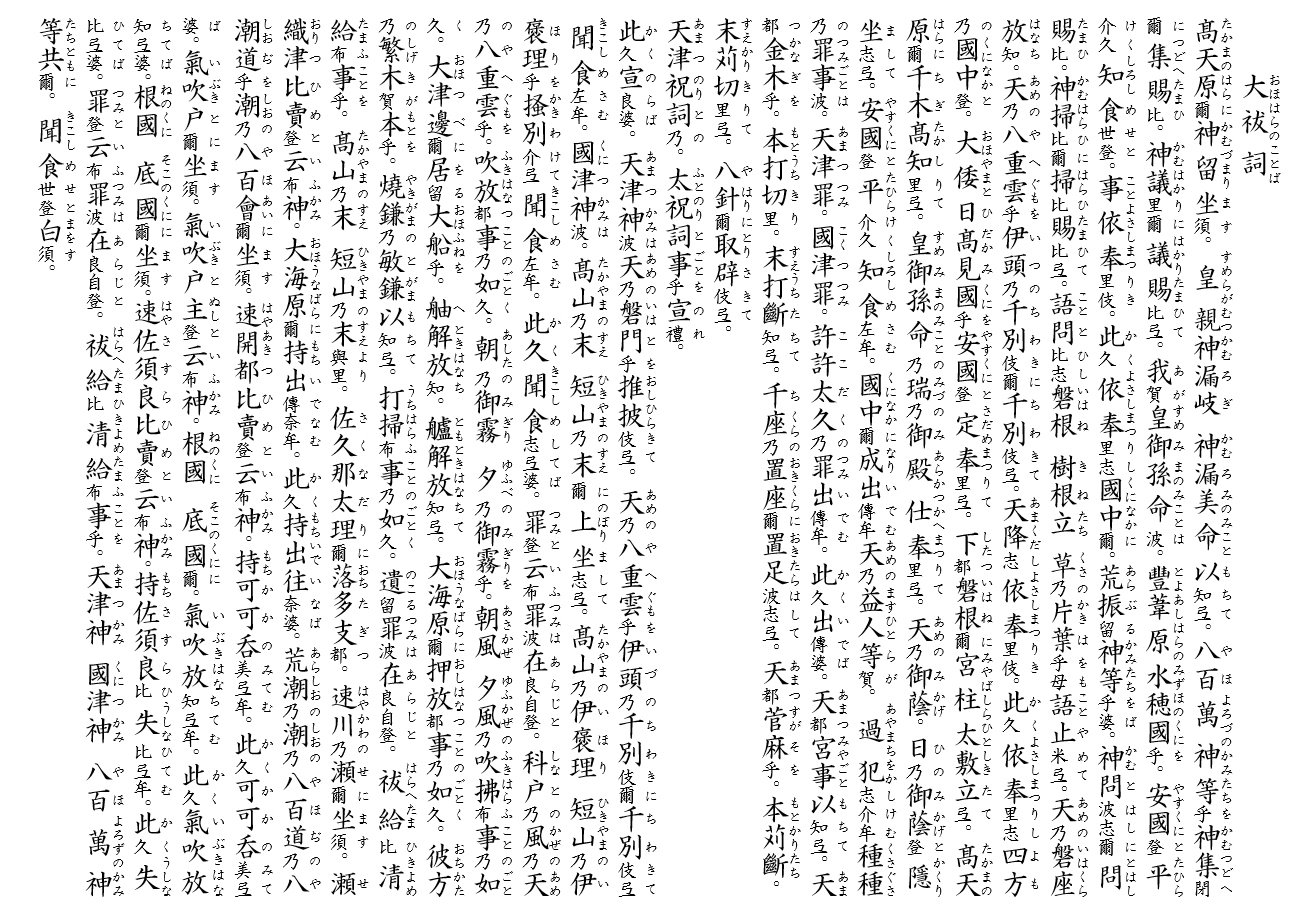 大祓詞
高天原爾神留坐須。皇親神漏岐神漏美命以知弖。八百萬神等乎神集閉
爾集賜比。神議里爾議賜比弖。我賀皇御孫命波。豐葦原水穂國乎。安國登平
介久知食世登。事依奉里伎。此久依奉里志國中爾。荒振留神等乎婆。神問波志爾問
賜比。神掃比爾掃比賜比弖。語問比志磐根樹根立草乃片葉乎母語止米弖。天乃磐座
放知。天乃八重雲乎伊頭乃千別伎爾千別伎弖。天降志依奉里伎。此久依奉里志四方
乃國中登。大倭日高見國乎安國登定奉里弖。下都磐根爾宮柱太敷立弖。高天
原爾千木高知里弖。皇御孫命乃瑞乃御殿仕奉里弖。天乃御蔭。日乃御蔭登隱
坐志弖。安國登平介久知食左牟。國中爾成出傳牟天乃益人等賀。過犯志介牟種種
乃罪事波。天津罪。國津罪。許許太久乃罪出傳牟。此久出傳婆。天都宮事以知弖。天
都金木乎。本打切里。末打斷知弖。千座乃置座爾置足波志弖。天都菅麻乎。本苅斷。
末苅切里弖。八針爾取辟伎弖。
天津祝詞乃。太祝詞事乎宣禮。
此久宣良婆。天津神波天乃磐門乎推披伎弖。天乃八重雲乎伊頭乃千別伎爾千別伎弖
聞食左牟。國津神波。高山乃末短山乃末爾上坐志弖。高山乃伊褒理短山乃伊
褒理乎掻別介弖聞食左牟。此久聞食志弖婆。罪登云布罪波在良自登。科戸乃風乃天
乃八重雲乎。吹放都事乃如久。朝乃御霧夕乃御霧乎。朝風夕風乃吹拂布事乃如
久。大津邊爾居留大船乎。舳解放知。艫解放知弖。大海原爾押放都事乃如久。彼方
乃繁木賀本乎。燒鎌乃敏鎌以知弖。打掃布事乃如久。遺留罪波在良自登。祓給比清
給布事乎。高山乃末短山乃末與里。佐久那太理爾落多支都。速川乃瀬爾坐須。瀬
織津比賣登云布神。大海原爾持出傳奈牟。此久持出往奈婆。荒潮乃潮乃八百道乃八
潮道乎潮乃八百會爾坐須。速開都比賣登云布神。持可可呑美弖牟。此久可可呑美弖
婆。氣吹戸爾坐須。氣吹戸主登云布神。根國底國爾。氣吹放知弖牟。此久氣吹放
知弖婆。根國底國爾坐須。速佐須良比賣登云布神。持佐須良比失比弖牟。此久失
比弖婆。罪登云布罪波在良自登。祓給比清給布事乎。天津神國津神八百萬神
等共爾。聞食世登白須。